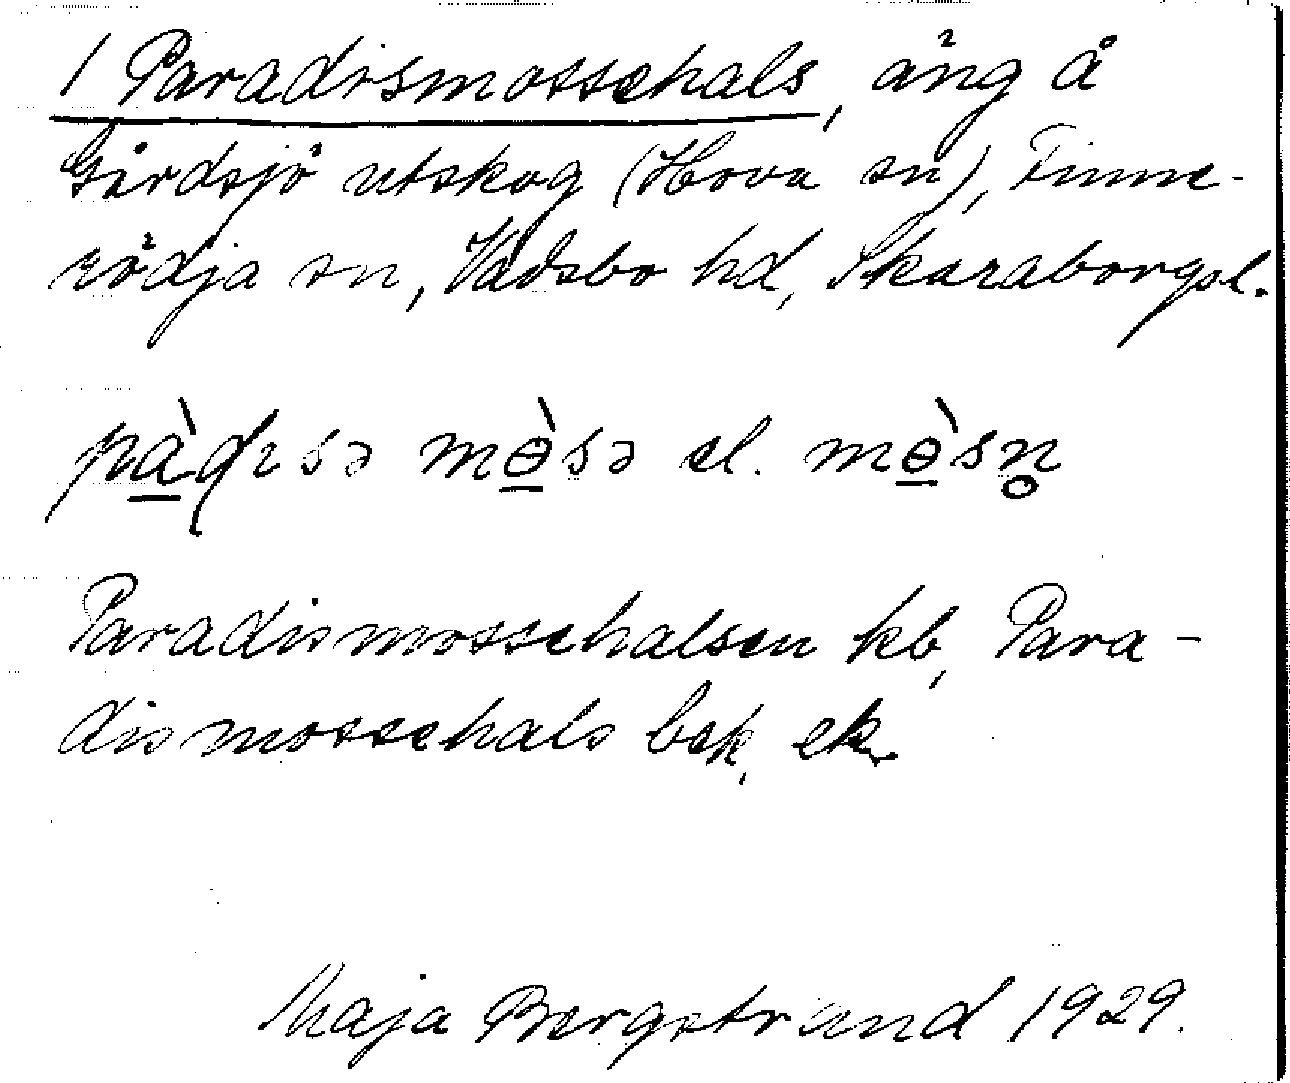 1 Paradismossehals, äng å
Gårdsjö utskog (Hova sn), Finne-
rödja sn, Vadsbo hd, Skaraborgsl.
pàdɩsə mɵ̀sə el. mɵ̀sn̥
Paradismossehalsen kb, Para-
dismossehals bsk, ek.
Maja Bergstrand 1929.